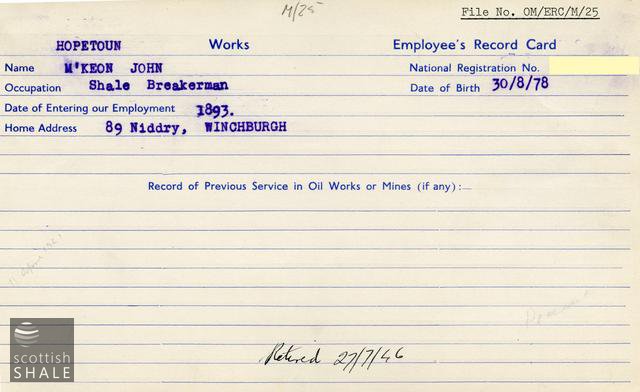 M/25
File No. OM/ERC/M/25
HOPETOUN Works Employee's Record Card
Name M'KEON JOHN National Registration No.
Occupation Shale Breakerman Date of Birth 30/8/78
Date of Entering our Employment 1893.
Home Address 89 Niddry, WINCHBURGH
Record of Previous Service in Oil Works or Mines (if any):—
Retired 27/7/46
scottish
SHALE